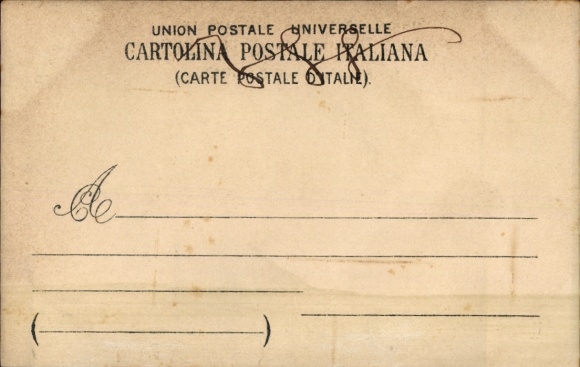 UNION POSTALE UNIVERSELLE
CARTOLINA POSTALE ITALIANA
(CARTE POSTALE D'ITALIE).
A
( )